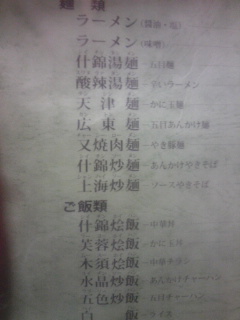 麺 類
ラーメン(醤油・塩)
ラーメン(味噌)
什錦湯麺 五目麺
酸辣湯麺 辛いラーメン
天津麺 かに玉麺
広東麺 五目あんかけ麺
叉焼肉麺 やき豚麺
什錦炒麺 あんかけやきそば
上海炒麺 ソースやきそば
ご飯類
什錦烩飯 中華丼
芙蓉烩飯 かに玉丼
木須烩飯 中華
水晶炒飯 あんかけチャーハン
五色炒飯 五目チャーハン
白 ライス